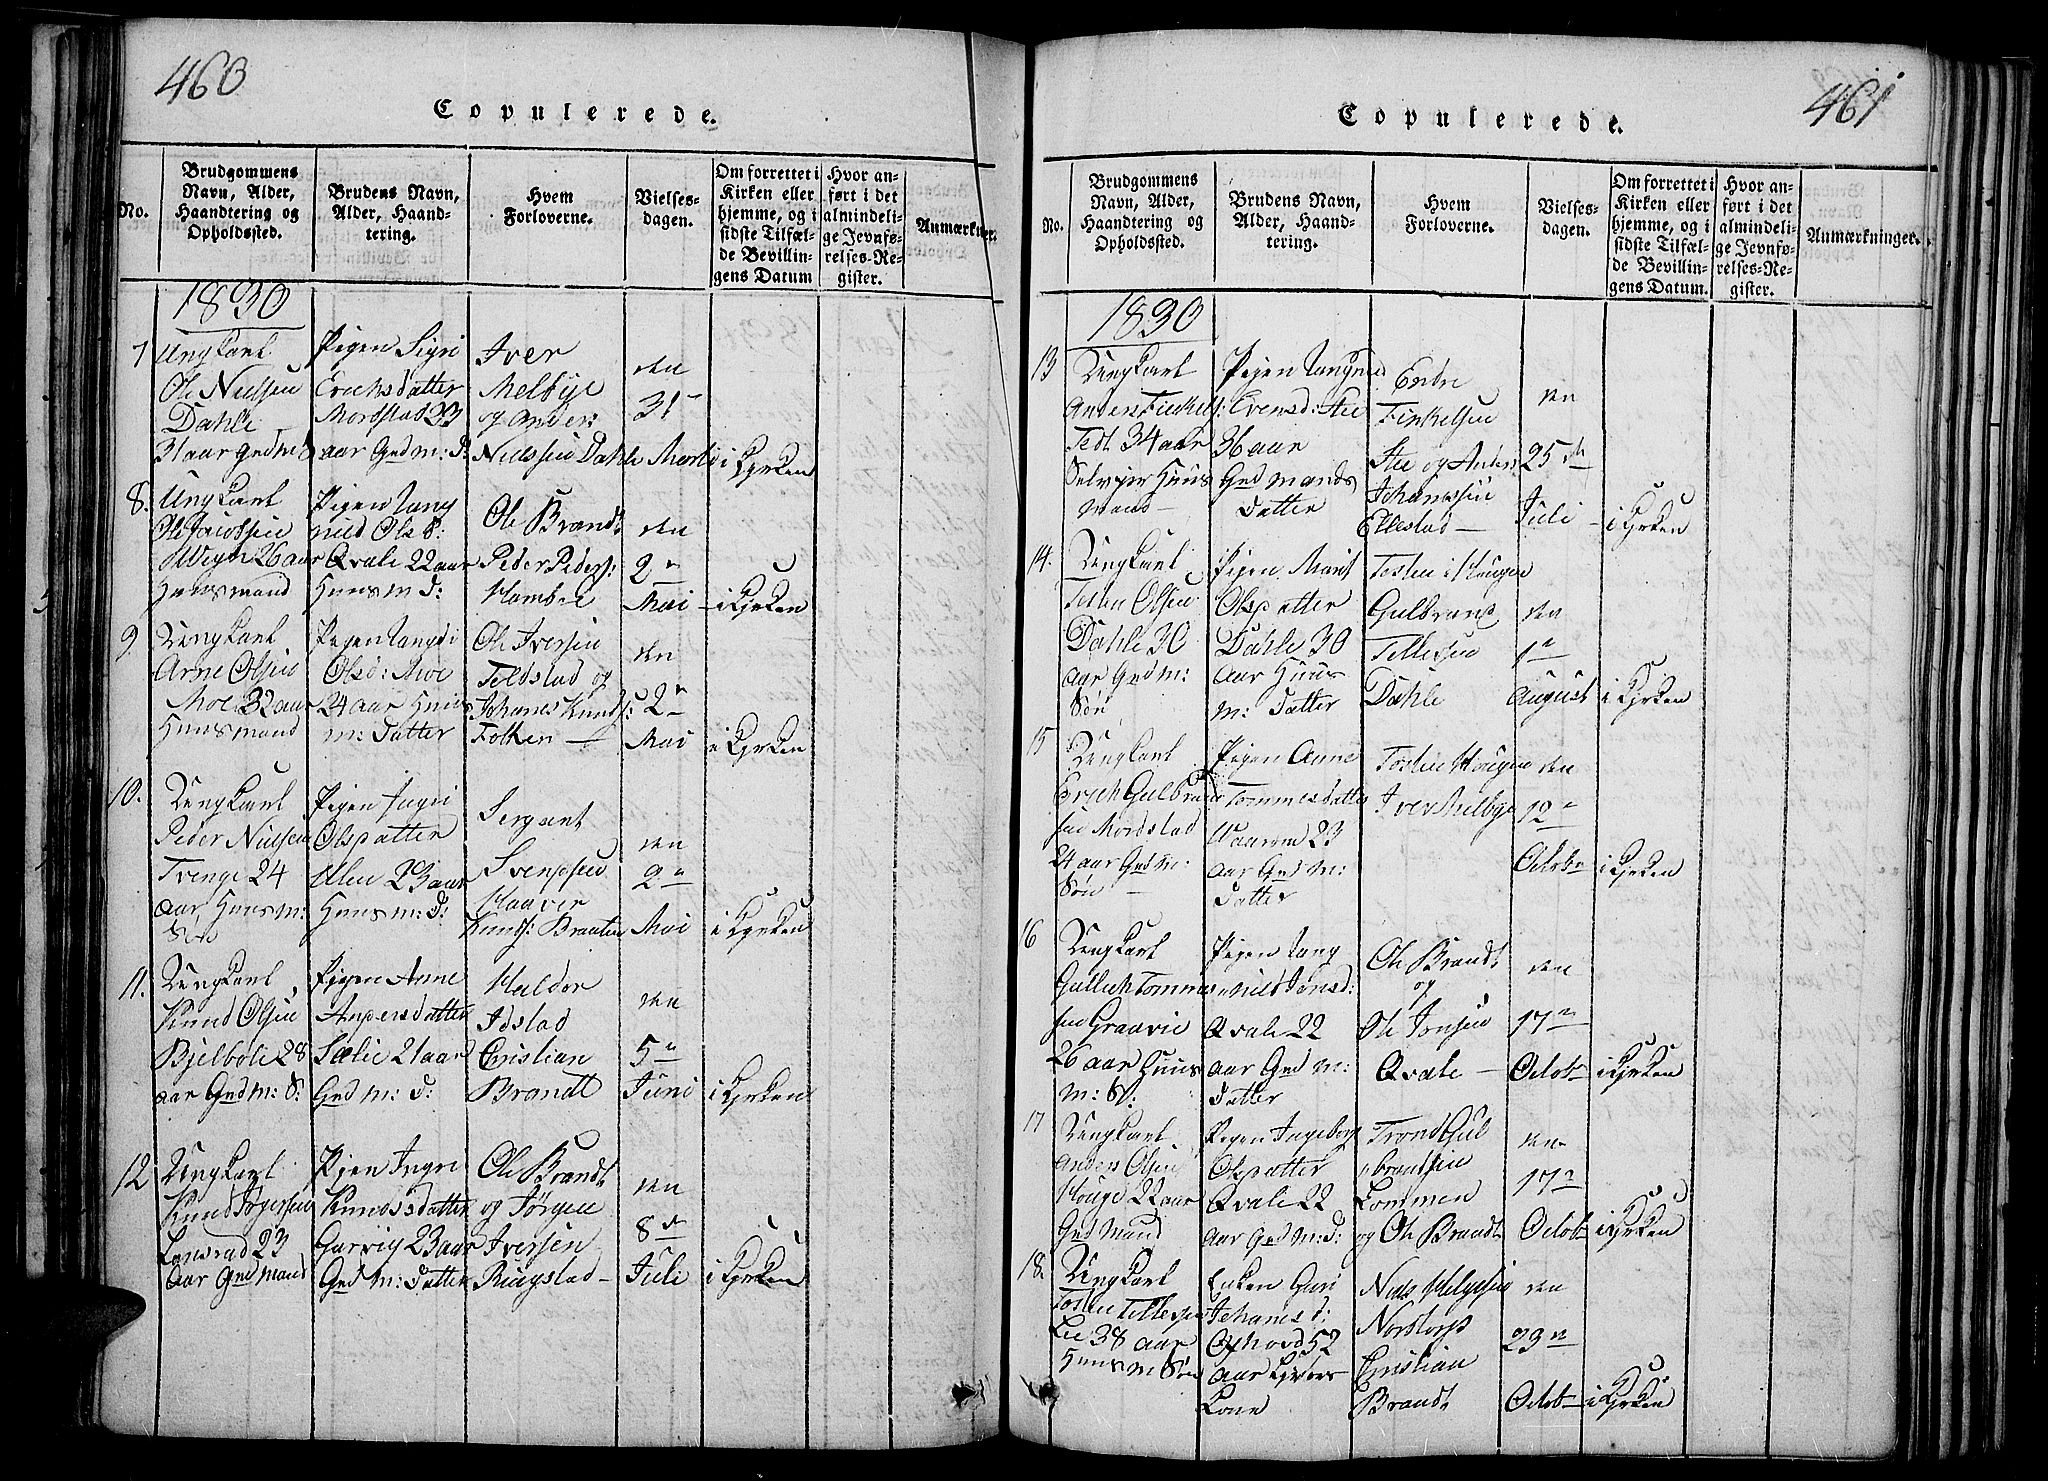 460
Copulerede.
No.
Brudgommens
Navn, Alder,
Haandtering og
Opholdssted.
Brudens Navn,
Alder, Haand-
tering.
Hvem
Forloverne.
Vielses-
dagen.
Om forrettet i
Kirken eller
hjemme, og i
sidste Tilfæl-
de Bevillin-
gens Datum
Hvor an-
ført i det
almindeli-
ge Jevnfø-
relses-Re-
gister.
Anmærkninger.
1830
7
Ungkarl
Ole Nielsen
Dahle
31 aar Gmd m: S
Pigen Sigri
Erichsdatter
Mordstad 33
aar Gmd m: D:
Iver
Melbye
og Anders
Nielsen Dahle
den
31
Marts
i Kyrken
8.
Ungkarl
Ole Jacobsen
26 aar
Huusmand
Pigen Lang
nild Ols D:
Qvale 22 aar
Huusm D:
Ole Brandt
Peder Peders:
Hambre
den
2n
Mai
i Kyrken
9
Ungkarl
Arne Olsen
Moe 32 aar
Huusmand
Pigen
Olsd: Moe
24 aar Huus
m: Datter
Ole Iversen
Feldstad og
Johanes Knuds:
Folken
den
2n
Mai
i Kyrken
10.
Ungkarl
Peder Nielsen
Tvenge 24
aar Huusm:
Søn
Pigen Ingri
Olsdatter
Ulen 23 aar
Huusm: D:
Sergant
Svendsen
Haaver
Knuds: Braaten
den
2n
Mai
i Kyrken
11.
Ungkarl
Knud Olsen
Bjelbole 28
aar Gmd m: S:
Pigen Anne
Andersdatter
Sælie 21 aar
Gmd m: D:
Haldor
Idstad
Cristian
Brandt
den
5n
Juni
i Kyrken
12
Ungkarl
Knud Jørgensen
Lomsrad 23
Aar Gmd mand
Pigen Ingri
Knudsdatter
Garvig 23 aar
Gmd m: Datter
Ole Brandt
og Jørgen
Iversen
Ringstad
den
8de
Juli
i Kyrken
461
Copulerede.
No.
Brudgommens
Navn, Alder,
Haandtering og
Opholdssted.
Brudens Navn,
Alder, Haand-
tering.
Hvem
Forloverne.
Vielses-
dagen.
Om forrettet i
Kirken eller
hjemme, og i
sidste Tilfæl-
de Bevillin-
gens Datum.
Hvor an-
ført i det
almindeli-
ge Jevnfø-
relses-Re-
gister.
Anmærkninger.
1830
13
Ungkarl
Anders Finkels:
34 aar
Selvejer Huus
mand
Pigen Langned
Evensd: Stee
36 aar
Gmd mands
Datter
Endre
Finkelsen
Stee og Anders
Johannesen
Ellestad
den
25de
Juli
i Kyrken
14.
Ungkarl
Tosten Olsen
Dahle 30
aar Gmd m:
Søn
Pigen Marit
Olsdatter
Dahle 30
aar Huus
m: Datter
Tosten Hougen
Gulbrand
Tellefsen
Dahle
den
1n
August
i Kyrken
15
Ungkarl
Erich Gulbrand
sen Mordstad
24 aar Gmd m:
Søn
Pigen Anne
Tommesdatter
Waarum 23
aar Gmd m:
Datter
Tosten Hougen
Iver Melbye
den
12n
Octob
i Kyrken
16
Ungkarl
Gullich Tommes
sen Graavie
26 aar Huus
m: S:
Pigen Lang
nild Jonsd:
Qvale 22
aar Gmd m:
Datter
Ole Brandt
og
Ole Jonsen
Qvale
den
17n
Octob
i Kyrken
17
Ungkarl
Anders Olsen
Houge 22 aar
Gmd Mand
Pigen Ingeborg
Olsdatter
Qvale 22
aar Gmd m: D:
Trond Gul
brandsen
Lommen
og Ole Brandt
den
17n
Octob
i Kyrken
18.
Ungkarl
Tosten Tellefsen
Lie 38 aar
Huusm Søn
Enken Guri
Johanesd:
52
aar
Kone
Niels Helgesen
Nordtorp
Cristian
Brandt
den
23n
Octob
i Kyrken